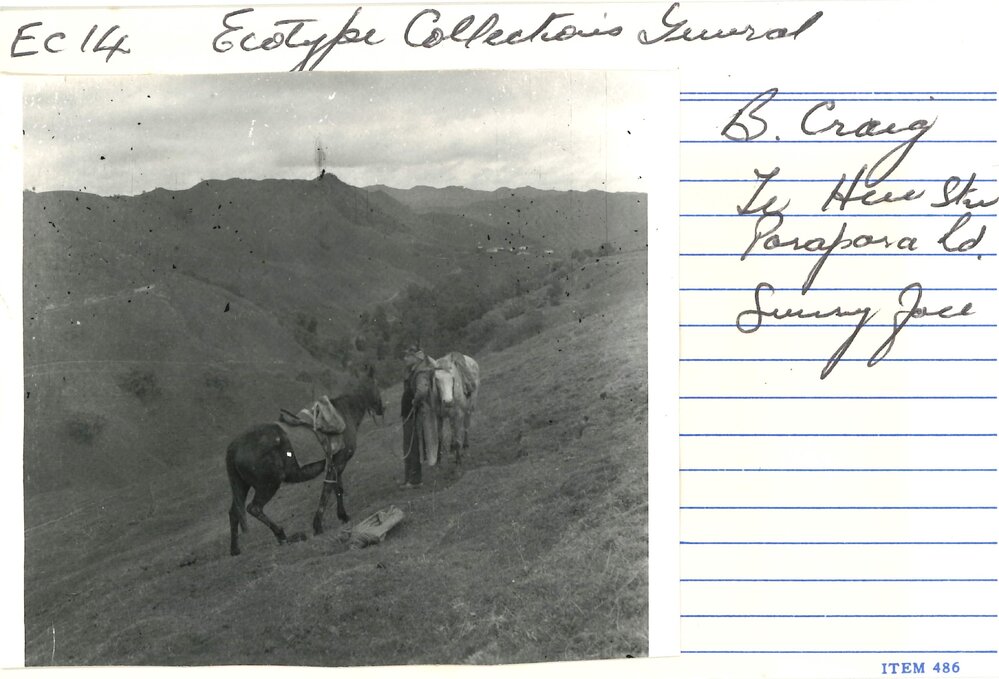 Ec 14 Ecotype Collections General
B. Craig
Te Hue Stn
Parapara Rd.
Sunny
ITEM 486